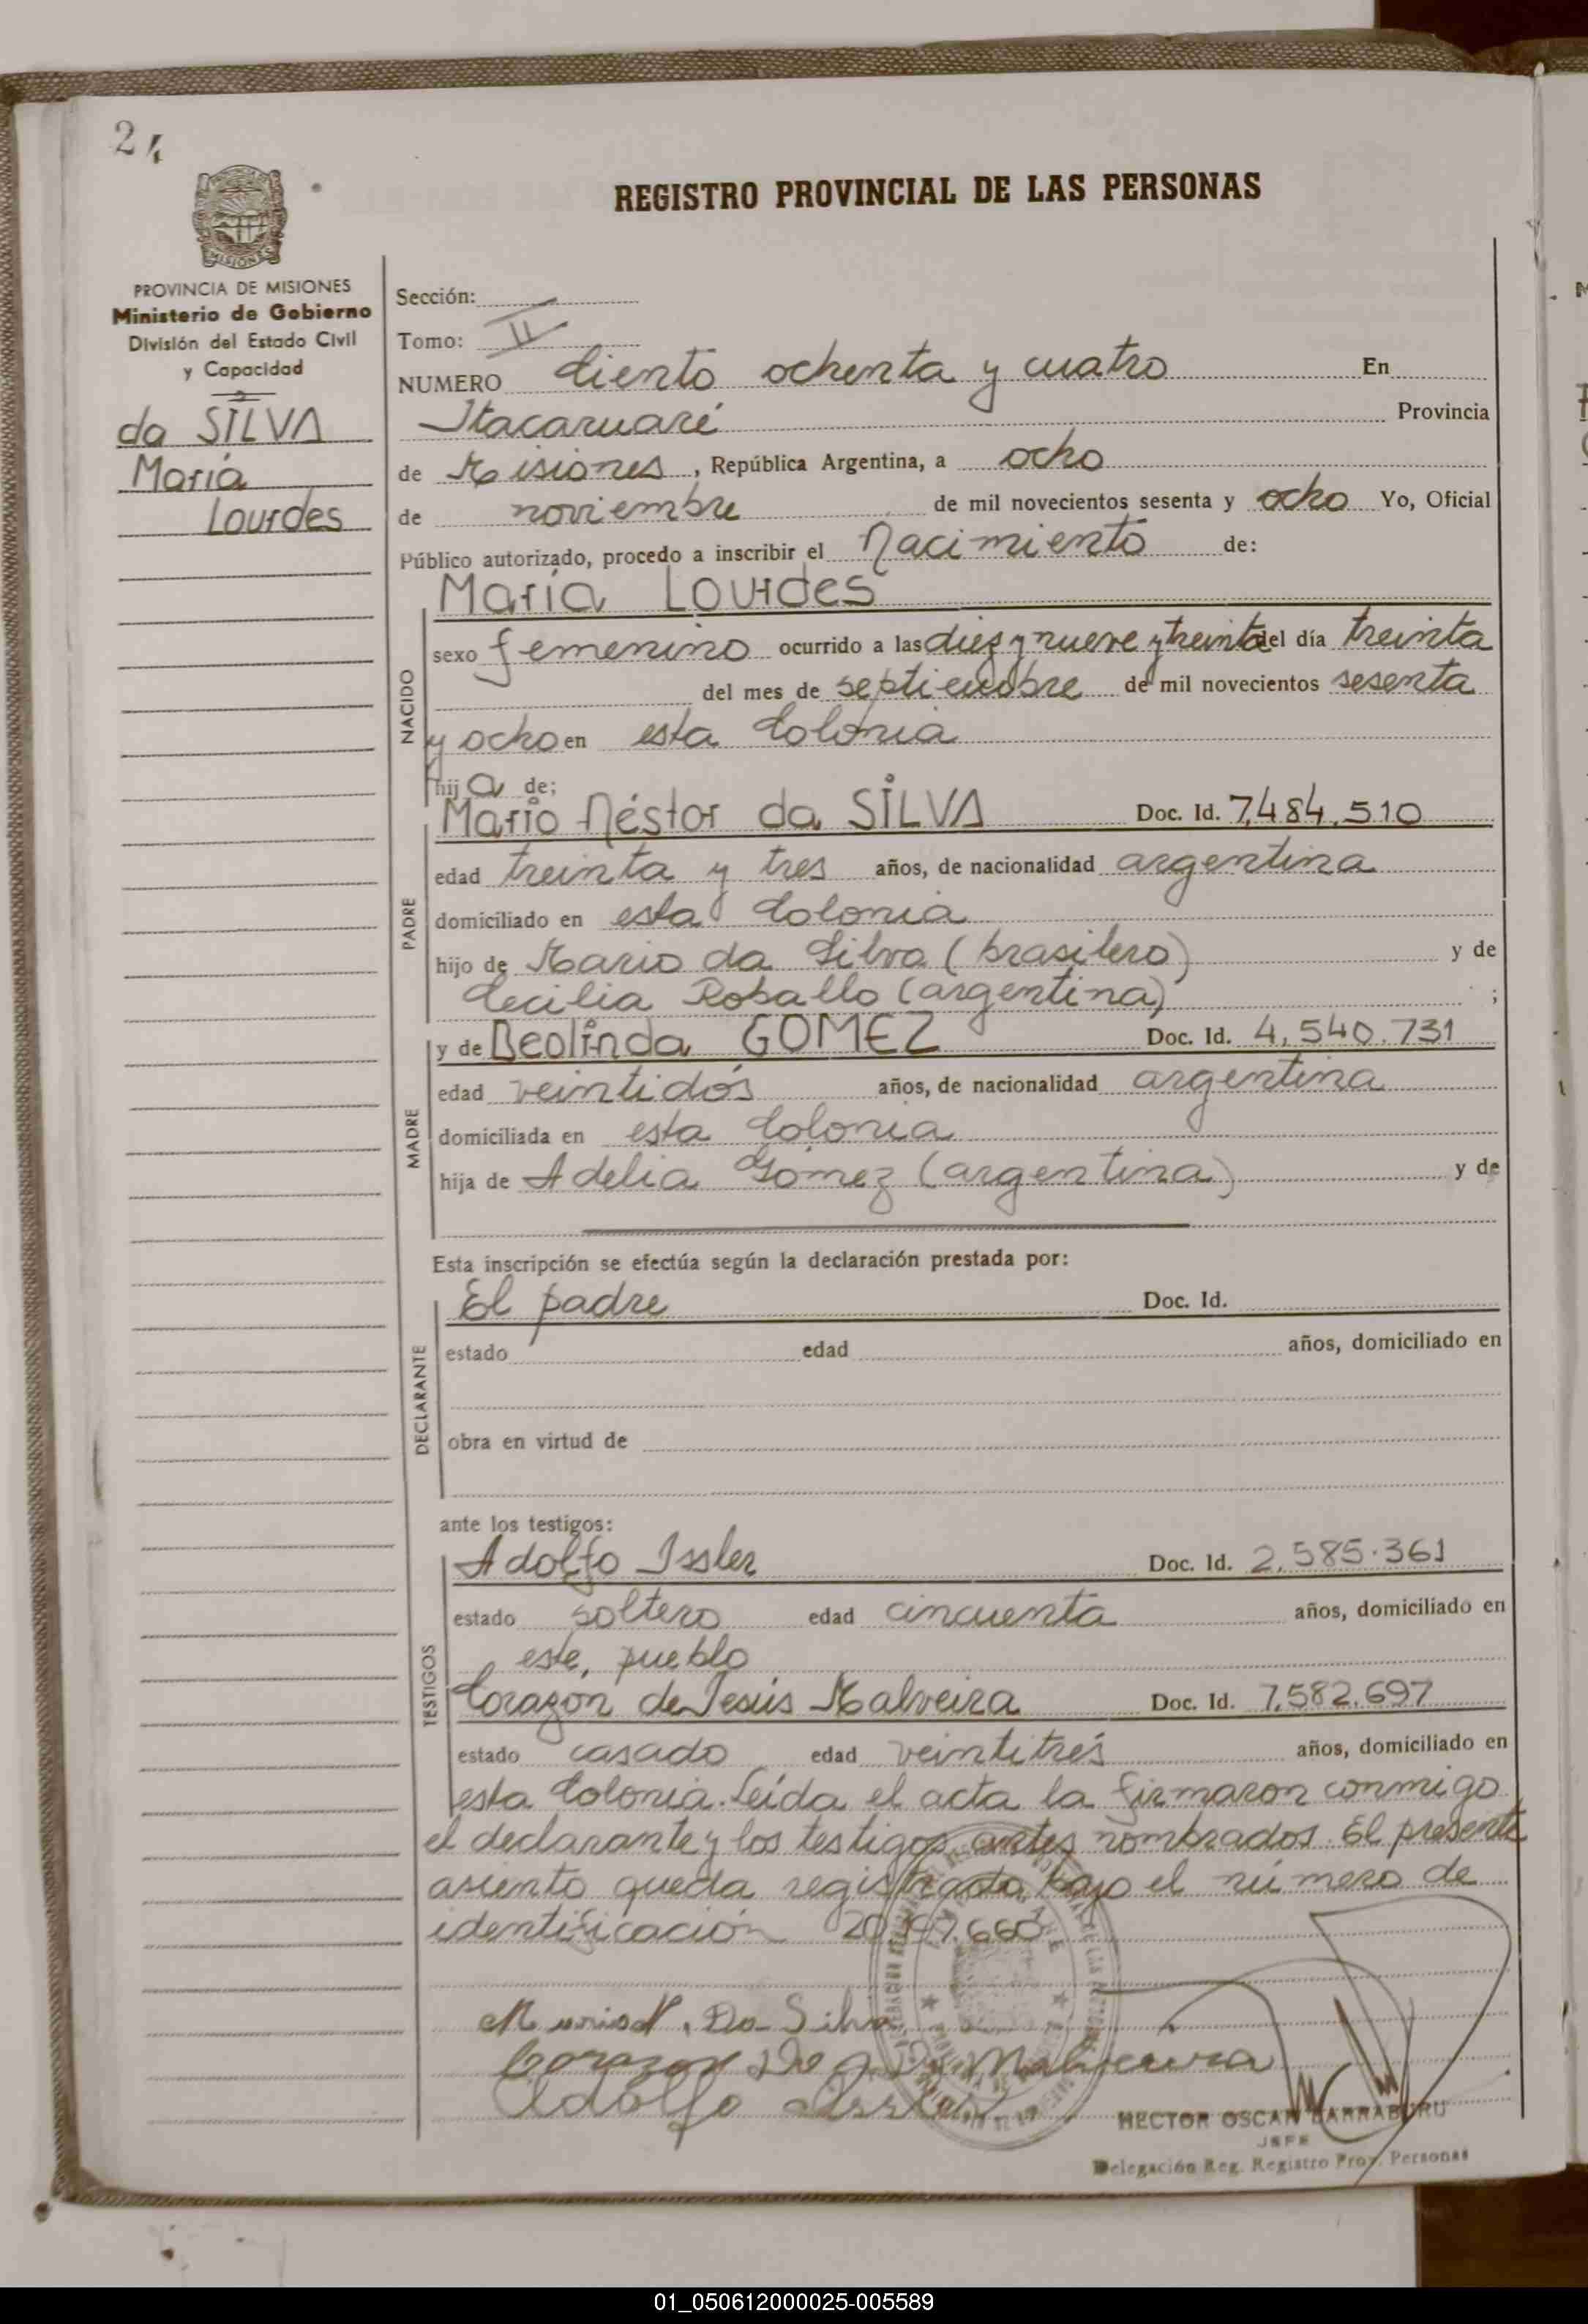 24
REGISTRO PROVINCIAL DE LAS PERSONAS
MISIONES
PROVINCIA DE MISIONES
Ministerio de Gobierno
División del Estado Civil
y Capacidad
da SILVA
María
Lourdes
Sección:
Tomo: II
NUMERO Ciento ochenta y cuatro En
Itacaruaré Provincia
de Misiones, República Argentina, a ocho
de noviembre de mil novecientos sesenta y ocho Yo, Oficial
Público autorizado, procedo a inscribir el Nacimiento de:
María Lourdes
NACIDO
sexo femenino ocurrido a las diez y nueve y treinta del día treinta
del mes de septiembre de mil novecientos sesenta
y ocho en esta Colonia
hija de;
PADRE
Mario Néstor da SILVA Doc. Id. 7.484.510
edad treinta y tres años, de nacionalidad argentina
domiciliado en esta Colonia
hijo de Mario da Silva (brasilero) y de
Cecilia Roballo (argentina) ;
MADRE
y de Deolinda GOMEZ Doc. Id. 4.540.731
edad veintidós años, de nacionalidad argentina
domiciliada en esta Colonia
hija de Adelia Gómez (argentina) y de
Esta inscripción se efectúa según la declaración prestada por:
DECLARANTE
El padre Doc. Id.
estado edad años, domiciliado en
obra en virtud de
ante los testigos:
TESTIGOS
Adolfo Issler Doc. Id. 2.585.361
estado soltero edad cincuenta años, domiciliado en
este, pueblo
Corazón de Jesús Malveira Doc. Id. 7.582.697
estado casado edad veintitrés años, domiciliado en
esta Colonia. Leída el acta la firmaron conmigo
el declarante y los testigos antes nombrados. El presente
asiento queda registrado bajo el número de
identificación
Mario N. Da Silva
Corazon De Malveira
Adolfo Issler
HECTOR OSCAR BARRABURU
JEFE
Delegación Reg. Registro Prov. Personas
01_050612000025-005589